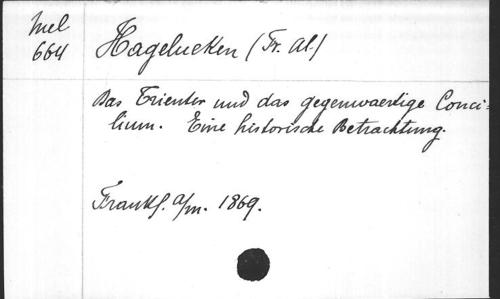 Mel
664
Hagelueken (Fr. Al.)
Das Trienter und das gegenwaertige Conci-
lium. Eine historische Betrachtung.
Frankf. a/m. 1869.